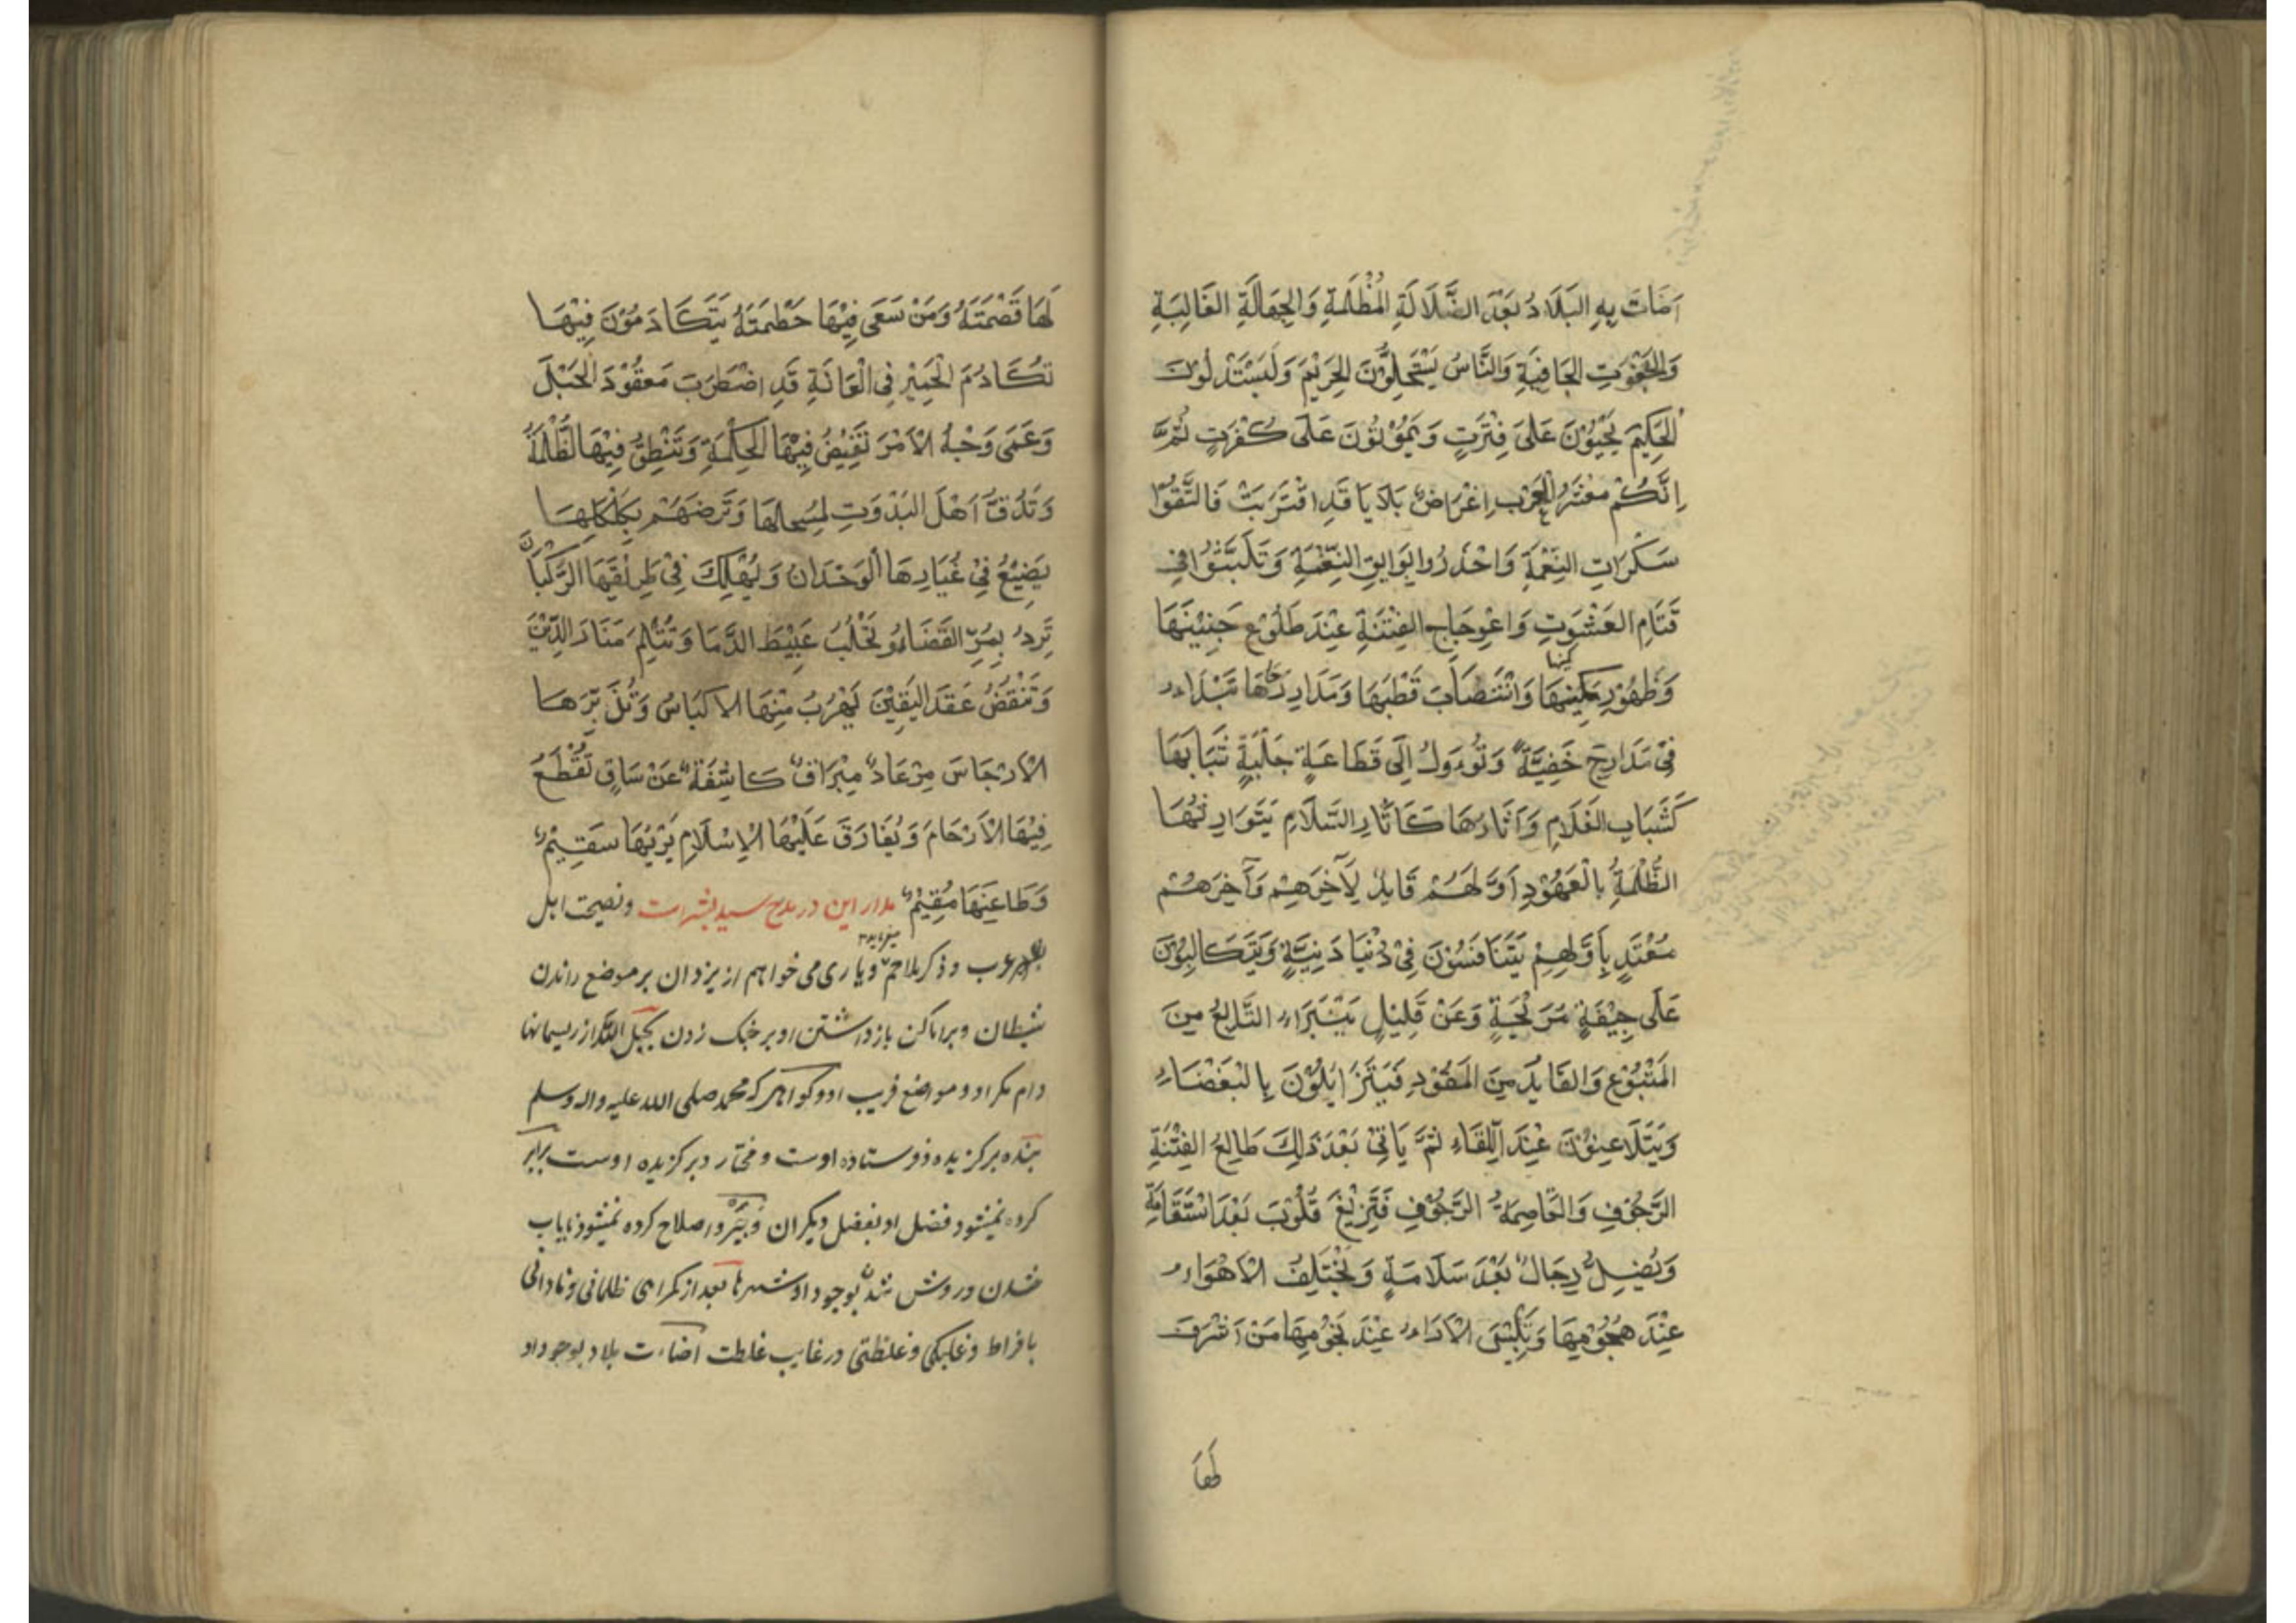 اَضَاتَ بِهِ البَلَادُ بَعْدَ الضَّلَالَةِ المُظْلِمَةِ وَالجَهَالَةِ الغَالِبَةِ
وَالجَفْوَتِ الجَافِيَةِ وَالنَّاسُ يَسْتَحِلُّوْنَ الحَرِيْمَ وَلَيسْتَذِلُّوْنَ
الحَكِيْمَ يَحْيَوْنَ عَلَى فِتْرَتٍ وَيَمُوْتُوْنَ عَلَى كُفْرَتٍ ثُمَّ
اِنَّكُمْ مَعْشَرَ العَرَبِ اغْرَاضُ بَلَايَا قَدِ اقْتَرَبَتْ فَالتَّقُوْا
سَكَرَاتِ النِعْمَةِ وَاحْذَرُوا بَوَايِقَ النِّقْمَةِ وَتَثَبَّتُوْا فِي
قَتَامِ العَشْوَتِ وَاعْوِجَاجِ الفِتْنَةِ عِنْدَ طُلُوْعِ جَنِيْنِهَا
وَظُهُوْرِ كَمِينِهَا وَانْتِصَابَ قُطْبِهَا وَمَدَارِ رَحَاهَا تَبْدَاءُ
فِيْ مَدَارِجَ خَفِيَّةً وَتَوُءوْلُ اِلَى قَطَاعَةٍ جَلِيَّةٍ شَبَابهَا
كَشَبَابِ الغُلَامِ وَآثَارُهَا كَاثَارِ السَّلَامِ يَتَوَارِثُهَا
الظُّلَمَةُ بِالْعُهُوْدِ اَوَّلُهُمْ قَايِدٌ لِآخِرِهِمْ وَآخِرُهُمْ
مُقْتَدٍ بِاَوَّلِهِمْ يَتَنَافَسُوْنَ فِيْ دُنْيَا دَنِيَّةٍ وَيَتَكَالِبُوْنَ
عَلَى جِيْفَةٍ مُرِيْحَةٍ وَعَنْ قَلِيْلٍ يَتَبَرَّاءُ التَّابِعُ مِنَ
المَتْبُوْعِ وَالقَايِدُ مِنَ المَقُوْدِ فَيَتَزَايَلُوْنَ بِالبَغْضَاءِ
وَيَتَلَاعَنُوْنَ عِنْدَ اللِّقَاءِ ثُمَّ يَاتِيْ بَعْدَ ذَالِكَ طَالِعُ الفِتْنَةِ
الرَّجُوْفِ وَالقَاصِمَةُ الرَّجُوْفِ فَتَزِيْغُ قُلُوْبَ بَعْدَ اسْتَقَامَةٍ
وَيَضِلُّ رِجَالٌ بَعْدَ سَلَامَةٍ وَتَخْتَلِفُ الْاَهْوَاءُ
عِنْدَ هُجُوْمِهَا وَتَلْتَبِسُ الْارَاءُ عِنْدَ نَجُوْمِهَا مَنْ اَشْرَفَ
لَهَا
لَهَا قَصْمَتَهُ وَمَنْ سَعَى فِيْهَا حَطَمَتَهُ يَتَكَادَمُوْنَ فِيْهَا
تَكَادُمَ الْحَمِيْرِ فِي الْعَانَةِ قَدِ اضْطَرَبَ مَعْقُوْدَ الحَبْلَ
وَعَمَى وَجْهُ الْاَمْرَ تَغِيْضُ فِيْهَا الحِكْمَةِ وَتَنْطِقُ فِيْهَا الظُّلَمَةُ
وَتَدُقُّ اَهْلَ البَدْوَتِ لِمِسْحَالِهَا وَتَرضُهَمْ بِكَلْكَلِهَا
يَضِيْعُ فِيْ غُبَارِهَا الْوَحْدَانُ وَيَهْلِكَ فِيْ طَرِيْقِهَا الرَّكْبَانُ
تَرِدُ بِمُرِّ القَضَاءِ وَتَحْلُبُ عَبِيْطَ الدَّمَا وَتُثْلِمُ مَنَارَ الدِّيْنَ
وَتَنْقُضُ عَقْدَ اليَقِيْنَ يَهْرُبُ مِنْهَا الاكيَاسُ وَتُدَبِّرَهَا
الْاَرْجَاسَ مِرْعَادٌ مِبْرَاقٌ كَاشِفَةٌ عَنْ سَاقٍ تُقْطَعُ
فِيْهَا الْاَرْحَامَ وَيُفَارَقُ عَلَيْهَا الْاِسْلَامِ بَرِيْهَا سَقِيْمٌ
وَظَاعِنَهَا مُقِيْمٌ مدار این در مدح سید بشر است و نصیحت اهل
عرب و ذکر ملاحم میفرماید و یاری می خواهم از یزدان بر موضع راندن
شیطان و بر اماکن بازداشتن او بر چنک زدن بحبل الله از ریسمانها
دام مکر او و مواضع فریب او و گواهم که محمد صلی الله علیه واله وسلم
بنده برکزیده و فرستاده اوست و مختار و برکزیده اوست برابر
کرده نمیشود فضل او بفضل دیکران و اصلاح کرده نمیشود نایاب
شدن و روشن شد بوجود او شهرها بعد از گمراهی ظلمانی و نادانی
بافراط و غلبکی و غلظتی در غایب غلطت اضاءت بلاد بوجود او